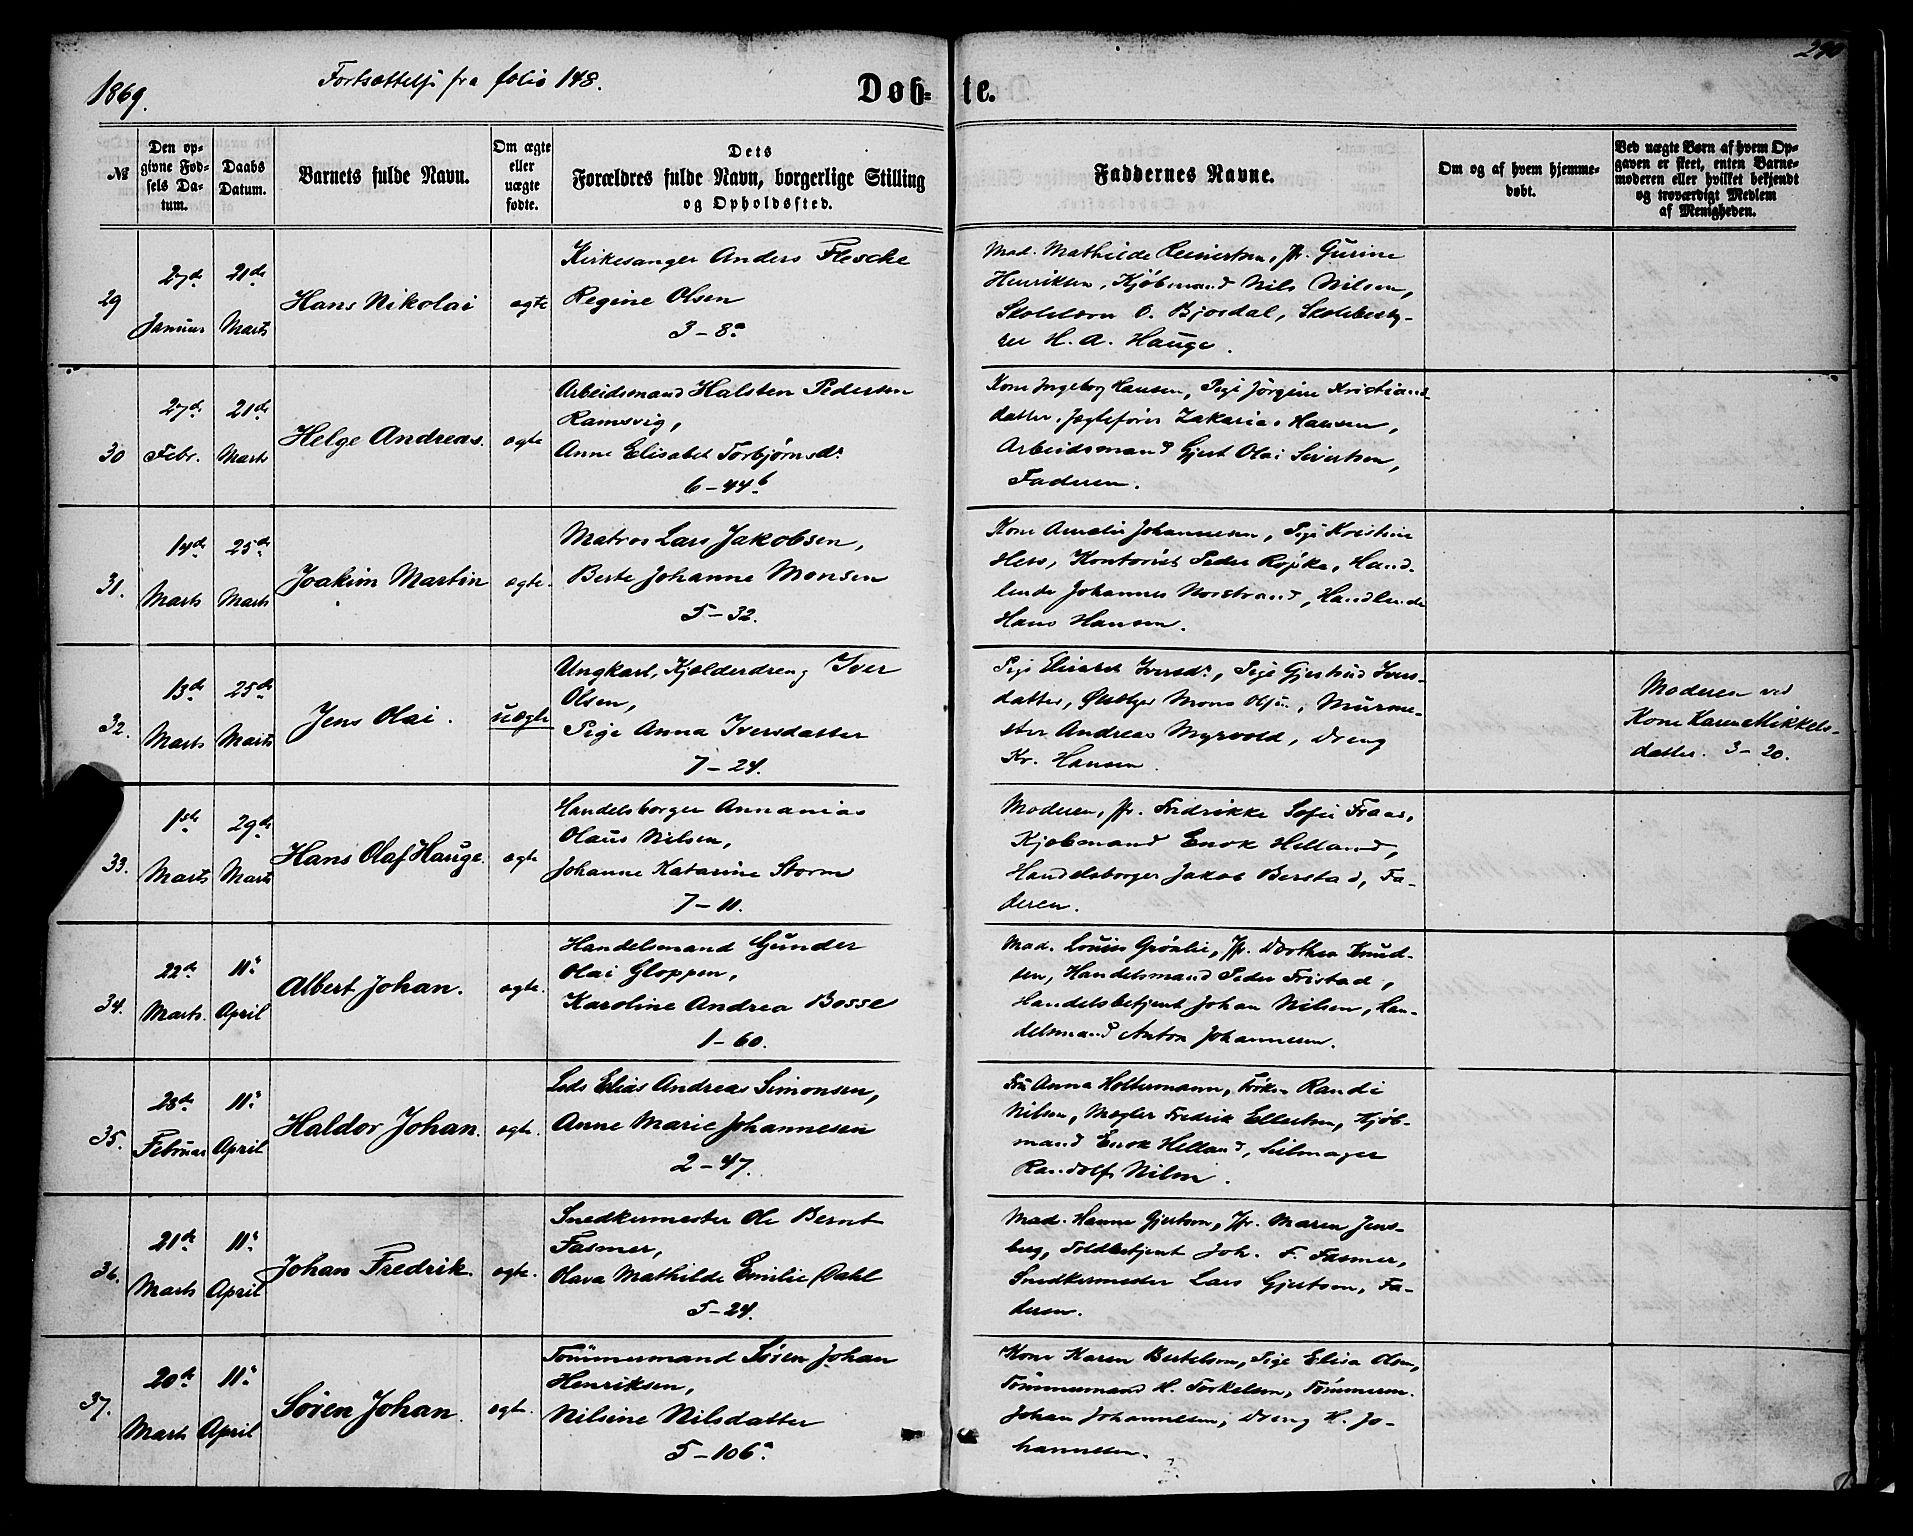 1869.
Fortsættelse fra folio 148.
Døb-te.
№
Den op-
givne Fød-
sels Da-
tum.
Daabs
Datum.
Barnets fulde Navn.
Om ægte
eller
uægte
fødte.
Dets
Forældres fulde Navn, borgerlige Stilling
og Opholdssted.
Faddernes Navne.
Om og af hvem hjemme-
døbt.
Ved uægte Børn af hvem Op-
gaven er skeet, enten Barne-
moderen eller hvilket bekjendt
og troværdigt Medlem
af Menigheden.
29
27de
Januar
21de
Marts
Hans Nikolai
ægte
Kirkesanger Anders Flesche
Regine Olsen
3-8a
Mad. Mathilde Reinertsen, Jfr. Gurine
Henriksen, Kjøbmand Nils Nilsen,
O. Bjordal, Skolebesty-
rer H. A. Hauge.
30
27de
Febr.
21de
Marts
Helge Andreas.
ægte
Arbeidsmand Halsten Pedersen
Ramsvig,
Anne Elisabet Torbjørnsdr
6-44b
Kone Ingeborg Hansen, Pige Jørgine Kristians-
datter, Jægtefører Zakarias Hansen,
Arbeidsmand Gjert Olai Sivertsen,
Faderen.
31.
14de
Marts
25de
Marts
Joakim Martin
ægte.
Matros Lars Jakobsen,
Berte Johanne Monsen
5-32.
Kone Amalie Johannesen, Pige Kristine
Hess, Kontorist Peder, Hand-
lende Johannes Norstrand, Handlende
Hans Hansen.
32.
13de
Marts
25de
Marts
Jens Olai.
uægte
Ungkarl, Kjelderdreng Iver
Olsen,
Pige Anna Iversdatter
7-24.
Pige Elisabet Iversdr, Pige Gjertrud Ivers-
datter, Mons Olsen, Murme-
ster Andreas Myrvold, Dreng
Kr. Hansen.
Moderen ved
Kone Karen Mikkels-
datter. 3-20.
33.
1ste
Marts
29de
Marts
Hans Olaf Hauge.
ægte
Handelsborger Annanias
Olaus Nilsen,
Johanne Katarine Storm
7-11.
Moderen, Jfr. Fredrikke Sofie Faas,
Kjøbmand Enok Helland,
Handelsborger Jakob Berstad, Fa-
deren.
34.
22de
Marts.
11te
April
Albert Johan.
ægte.
Handelsmand Gunder
Olai Gloppen,
Karoline Andrea Bosse
1-60.
Mad. Louise, Jfr. Dorthea Knud-
sen, Handelsmand Peder Fristad,
Handelsbetjent Johan Nilsen, Han-
delsmand Anton Johannesen.
35.
28de
Februar
11te
April
Haldor Johan.
ægte.
Lods Elias Andreas Simonsen,
Anne Marie Johannesen
2-47.
Fru Anna Holtermann, Frøken Randi
Nilsen, Mægler Fredrik Ellertsen, Kjøb-
mand Enok Helland, Seilmager
Randolf Nilsen.
36.
21de
Marts
11te
April
Johan Fredrik.
ægte.
Snedkermester Ole Bernt
Fasmer,
Olava Mathilde Emilie Dahl
5-24.
Mad. Hanne Gjertsen, Jfr. Maren Jens-
berg, Toldbetjent Joh. F. Fasmer,
Snedkermester Lars Gjertsen, Fa-
deren.
37.
20de
Marts
11te
April
Søren Johan.
ægte.
Tømmermand Søren Johan
Henriksen,
Nilsine Nilsdatter
5-106a
Kone Karen Bertelsen, Pige Elisa Olsen,
Tømmermand H. Torkelsen, Tømmerm.
Johan Johannesen, Dreng H. Jo-
hannesen.